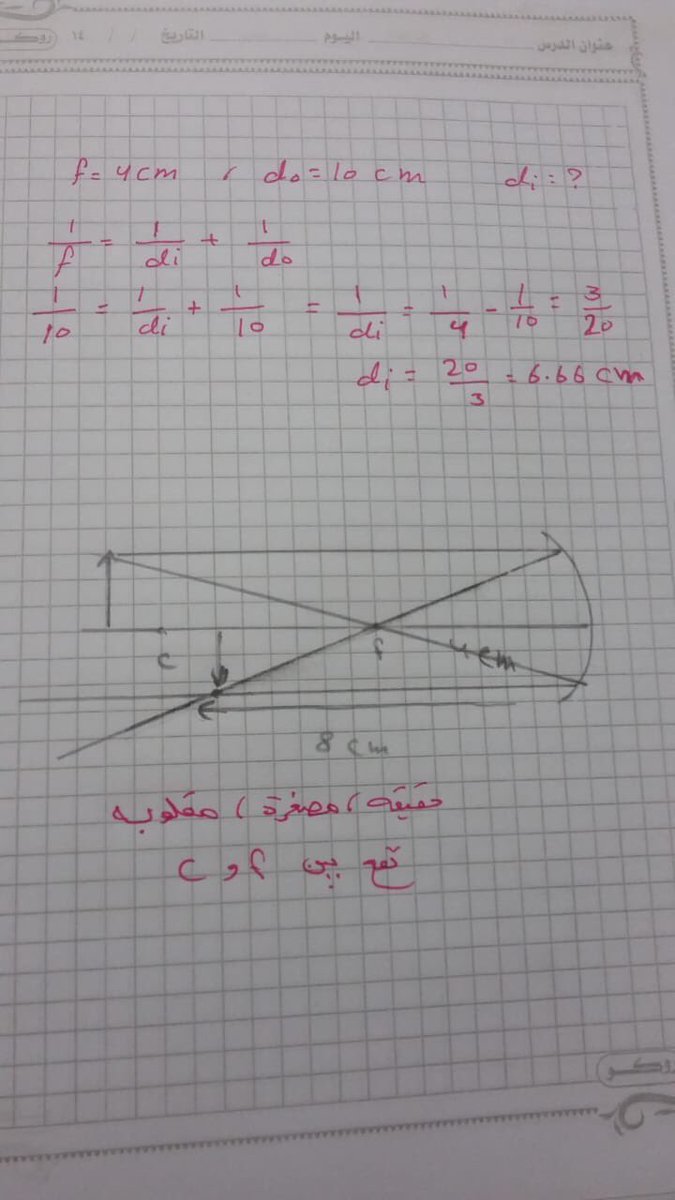 عنوان الدرس اليوم التاريخ / / ١٤
f = 4 cm , do = 10 cm di = ?
1/f = 1/di + 1/do
1/10 = 1/di + 1/10 = 1/di = 1/4 - 1/10 = 3/20
di = 20/3 = 6.66 cm
c f 4 cm
8 cm
حقيقيه، مصغرة، مقلوبه
تقع بين f و c